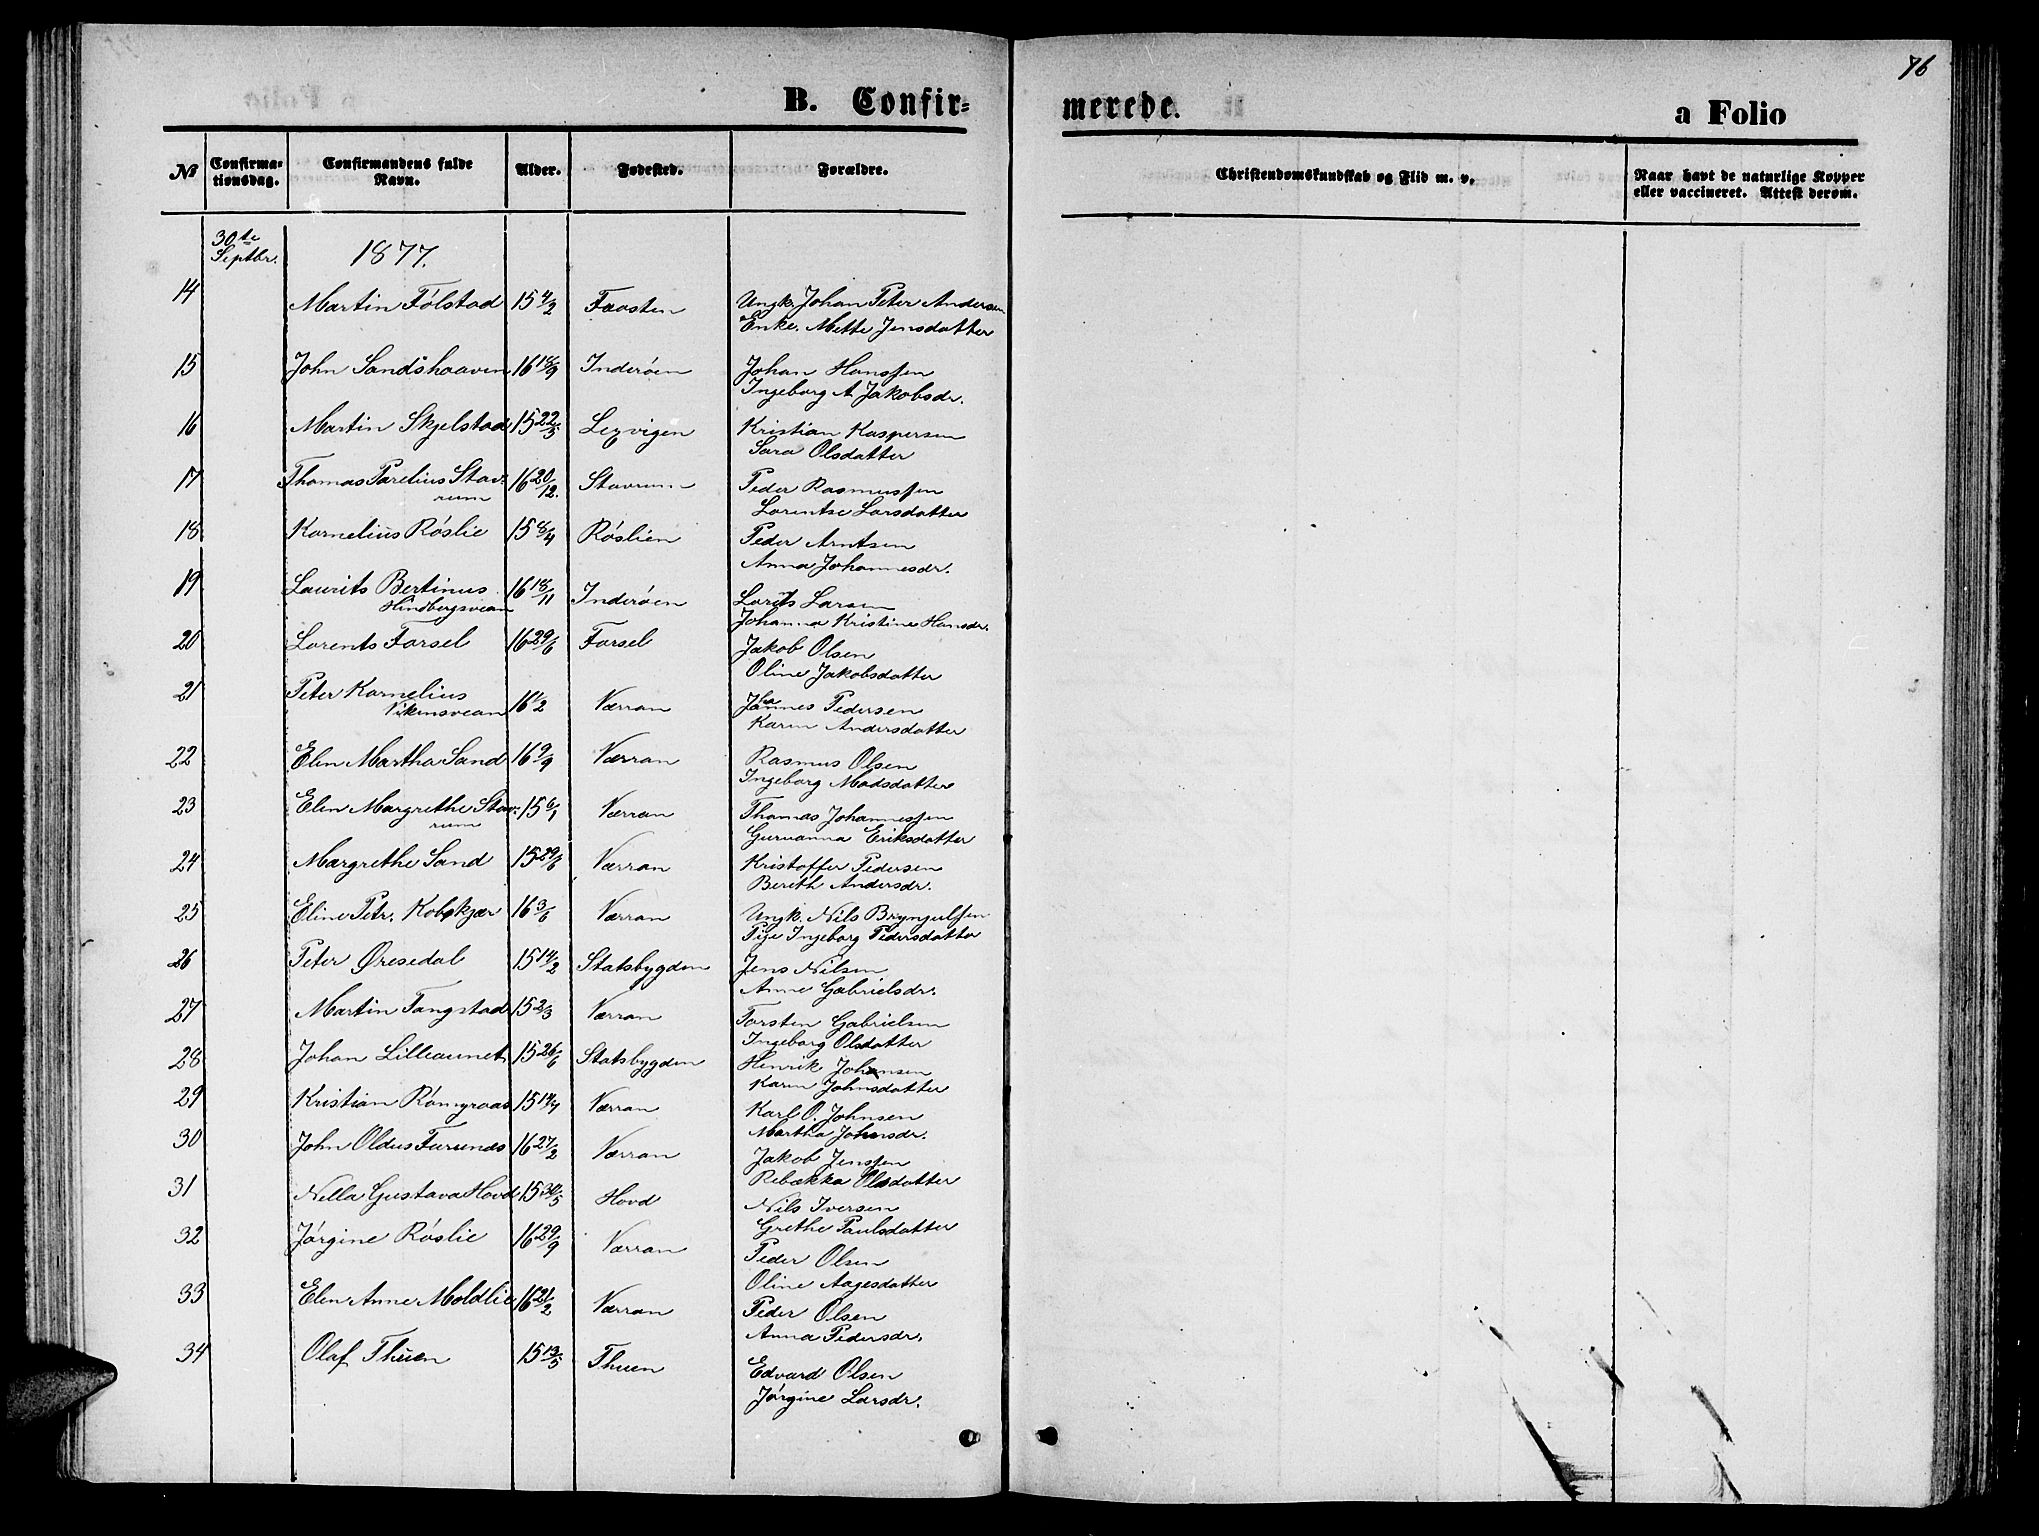 76
B. Confir=
merede.
a Folio
№ Confirma=tionsdag. Confirmandens fulde Navn. Alder. Fødested. Forældre. Christendomskundskab og Flid m. v. Naar havt de naturlige Kopper eller vaccineret. Attest derom.
30te Septbr. 1877.
14 Martin Følstad 15 4/2 Frosten Ungk. Johan Peter Andersen
Enke. Mette Jensdatter
15 John Sandshaaven 16 18/9 Inderøen Johan Hanssen
Ingeborg A Jakobsdr.
16 Martin Skjelstad 15 22/5 Lexvigen Kristian Kaspersen
Sara Olsdatter
17 Thomas Parelius Stav= 16 20/12. Stavrum Peder Rasmussen
rum Lorentse Larsdatter
18 Kornelius Røslie 15 8/4 Røslien Peder Arntsen
Anna Johannesdr.
19 Laurits Bertinus 16 18/11 Inderøen Larits Larsen
Hindbergsvean Johanna Kristine Hansdr.
20 Lorents Forsel 16 29/6 Forsel Jakob Olsen
Oline Jakobsdatter
21 Peter Kornelius 16 1/2 Værran Johannes Pedersen
Vikensvean Karen Andersdatter
22 Elen Martha Sand 16 9/9 Værran Rasmus Olsen
Ingeborg Madsdatter
23 Elen Margrethe Stav= 15 6/1 Værran Thomas Johannessen
rum Guruanna Eriksdatter
24 Margrethe Sand 15 29/6 Værran Kristoffer Pedersen
Bereth Andersdr.
25 Eline Petr. Kobskjær 16 3/6 Værran Ungk. Nils Bryngelssen
Pige Ingeborg Pedersdatter
26 Peter Øresedal 15 14/2 Statsbygden Jens Nilsen
Anne Gabrielsdr.
27 Martin Tangstad 15 2/3 Værran Torsten Gabrielsen
Ingeborg Olsdatter
28 Johan Lilleaunet 15 26/6 Statsbygden Henrik Johansen
Karen Johnsdatter
29 Kristian Rømyraas 15 14/7 Værran Karl O. Johnsen
Martha Johnsdr.
30 John Oldus Furunes 16 27/2 Værran Jakob Jenssen
Rebækka Olsdatter
31 Nella Gustava Hovd 15 30/5 Hovd Nils Iversen
Grethe Paulsdatter
32 Jørgine Røslie 16 29/9 Værran Peder Olsen
Oline Aagesdatter
33 Elen Anne Moldlie 16 21/2 Værran Peder Olsen
Anna Pedersdr.
34 Olaf Thuen 15 13/5 Thuen Edvard Olsen
Jørgine Larsdr.